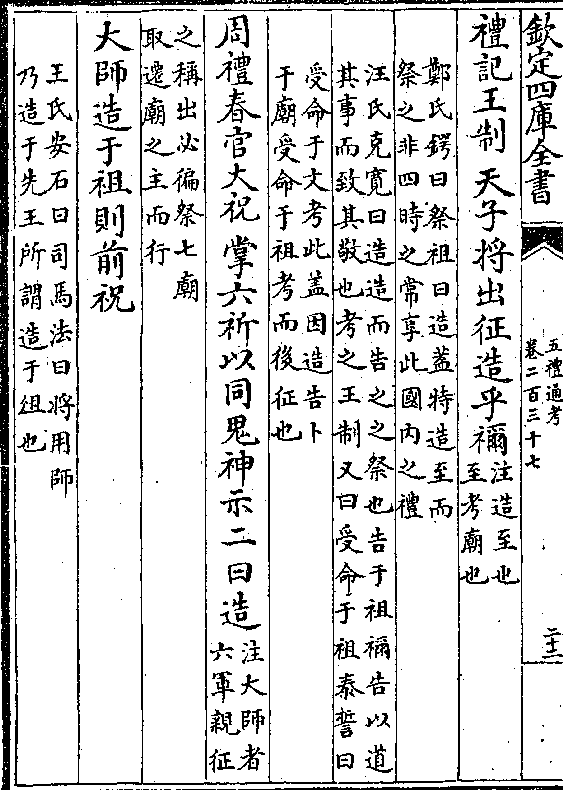 欽定四庫全書
五禮通考
卷二百三十七
二十二
禮記王制天子將出征造乎禰注造至也
至考廟也
鄭氏鍔曰祭祖曰造蓋特造至而
祭之非四時之常享此國内之禮
汪氏克寛曰造造而告之之祭也告于祖禰告以道
其事而致其敬也考之王制又曰受命于祖泰誓曰
受命于文考此蓋因造告卜
于廟受命于祖考而後征也
周禮春官大祝掌六祈以同鬼神示二曰造注大師者
六軍親征
之稱出必徧祭七廟
取遷廟之主而行
大師造于祖則前祝
王氏安石曰司馬法曰將用師
乃造于先王所謂造于祖也